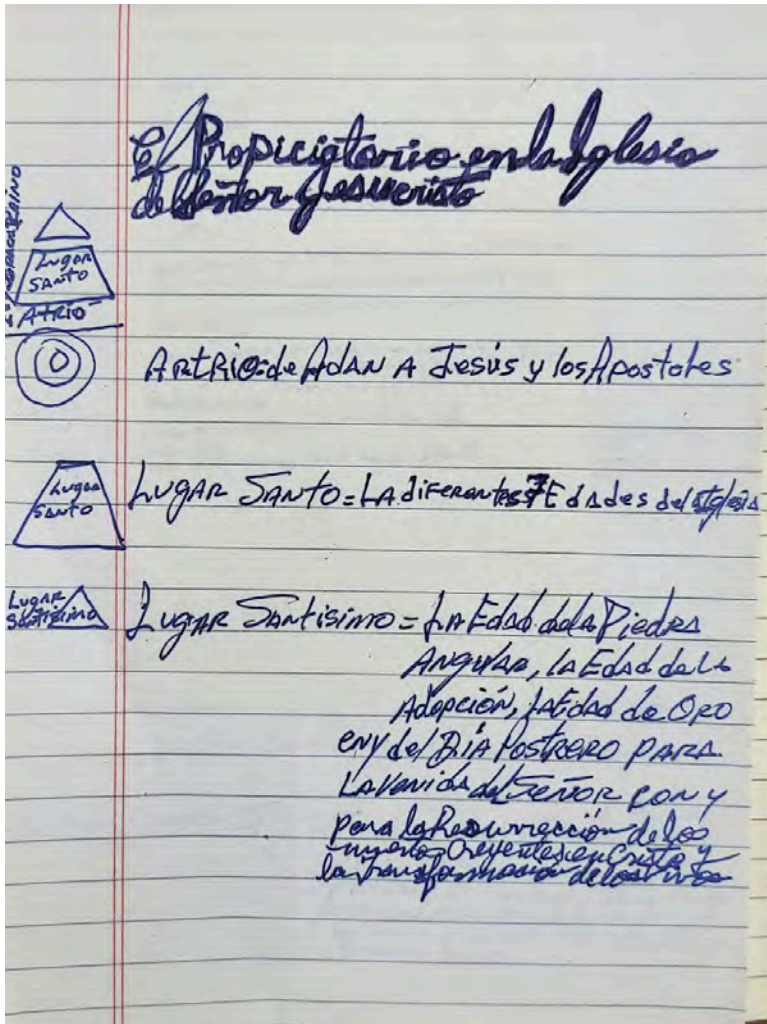 El Propiciatorio en la Iglesia
del Señor Jesucristo
Lugar
Santo
Atrio
Artrio = de Adan A Jesús y los Apostoles
Lugar
Santo
Lugar Santo = La diferentes 7 Edades de la Iglesia
Lugar
Santisimo
Lugar Santisimo = La Edad de la Piedra
Angular, la Edad de la
Adopción, la Edad de Oro
en y del Día Postrero para
La Venida del Señor con y
para la Resurrección de los
muertos Creyentes en Cristo y
la transformación de los vivos